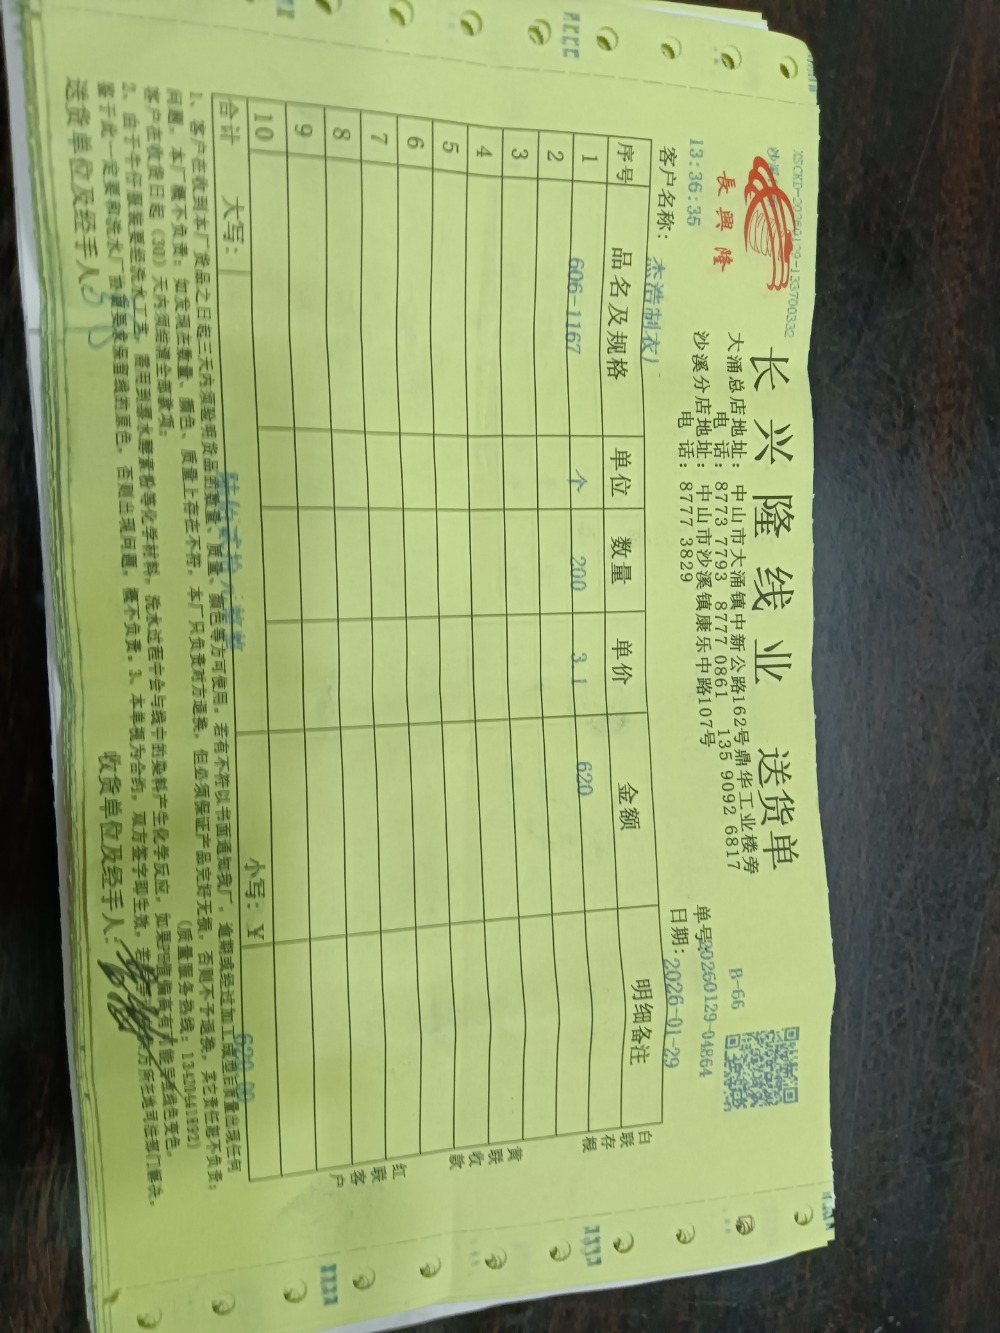 XSCKD-20260129-133700332
長興隆
长兴隆线业 送货单
大涌总店地址: 中山市大涌镇中新公路162号鼎华工业楼旁
电 话: 8773 7793 8777 0861 135 9092 6817
沙溪分店地址: 中山市沙溪镇康乐中路107号
电 话: 8777 3829
B-66
单号 20260129-04864
13:36:35
日期: 2026-01-29
客户名称: 杰浩制衣)
序号 品名及规格 单位 数量 单价 金额 明细备注
1 606-1167 个 200 3.1 620
2
3
4
5
6
7
8
9
10
合计 大写: 小写: ¥ 620.00
白联存根
黄联收款
红联客户
1、客户在收到本厂货品之日起三天内须验明货品的数量、质量、颜色等方可使用。若有不符以书面通知我厂,逾期或经过加工成型后质量出现任何
问题,本厂概不负责;如发现在数量、颜色、质量上存在不符,本厂只负责对方退换,但必须保证产品完好无损,否则不予退换,其它责任施不负责;
客户在收货日起(30)天内须结清全部款项; (质量服务热线:13420461892)
2、由于牛仔服装要经洗水工艺,需用到漂水酵素粉等化学材料,洗水过程中会与线中的染料产生化学反应,如果PH值偏高有可能导致线色变色。
鉴于此一定要和洗水厂 保留线的原色,否则出现问题,概不负责。3、本单视为合约,双方签字即生效,若 方所在地司法部门解决。
送货单位及经手人:
收货单位及经手人: